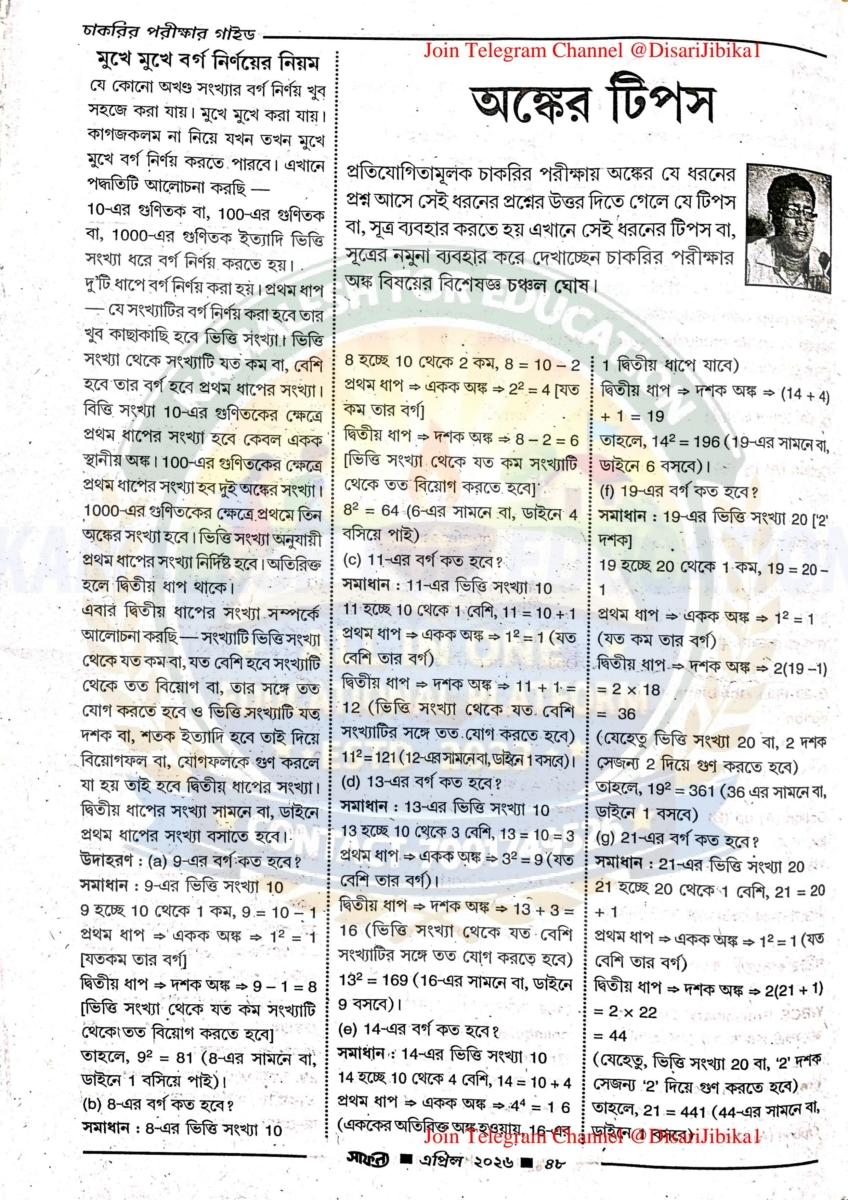 চাকরির পরীক্ষার গাইড
Join Telegram Channel @DisariJibika1
মুখে মুখে বর্গ নির্ণয়ের নিয়ম
যে কোনো অখণ্ড সংখ্যার বর্গ নির্ণয় খুব
সহজে করা যায়। মুখে মুখে করা যায়।
কাগজকলম না নিয়ে যখন তখন মুখে
মুখে বর্গ নির্ণয় করতে পারবে। এখানে
পদ্ধতিটি আলোচনা করছি —
10-এর গুণিতক বা, 100-এর গুণিতক
বা, 1000-এর গুণিতক ইত্যাদি ভিত্তি
সংখ্যা ধরে বর্গ নির্ণয় করতে হয়।
দু'টি ধাপে বর্গ নির্ণয় করা হয়। প্রথম ধাপ
— যে সংখ্যাটির বর্গ নির্ণয় করা হবে তার
খুব কাছাকাছি হবে ভিত্তি সংখ্যা। ভিত্তি
সংখ্যা থেকে সংখ্যাটি যত কম বা, বেশি
হবে তার বর্গ হবে প্রথম ধাপের সংখ্যা।
বিত্তি সংখ্যা 10-এর গুণিতকের ক্ষেত্রে
প্রথম ধাপের সংখ্যা হবে কেবল একক
স্থানীয় অঙ্ক। 100-এর গুণিতকের ক্ষেত্রে
প্রথম ধাপের সংখ্যা হব দুই অঙ্কের সংখ্যা।
1000-এর গুণিতকের ক্ষেত্রে প্রথমে তিন
অঙ্কের সংখ্যা হবে। ভিত্তি সংখ্যা অনুযায়ী
প্রথম ধাপের সংখ্যা নির্দিষ্ট হবে। অতিরিক্ত
হলে দ্বিতীয় ধাপ থাকে।
এবার দ্বিতীয় ধাপের সংখ্যা সম্পর্কে
আলোচনা করছি — সংখ্যাটি ভিত্তি সংখ্যা
থেকে যত কম বা, যত বেশি হবে সংখ্যাটি
থেকে তত বিয়োগ বা, তার সঙ্গে তত
যোগ করতে হবে ও ভিত্তি সংখ্যাটি যত
দশক বা, শতক ইত্যাদি হবে তাই দিয়ে
বিয়োগফল বা, যোগফলকে গুণ করলে
যা হয় তাই হবে দ্বিতীয় ধাপের সংখ্যা।
দ্বিতীয় ধাপের সংখ্যা সামনে বা, ডাইনে
প্রথম ধাপের সংখ্যা বসাতে হবে।
উদাহরণ : (a) 9-এর বর্গ কত হবে?
সমাধান : 9-এর ভিত্তি সংখ্যা 10
9 হচ্ছে 10 থেকে 1 কম, 9 = 10 – 1
প্রথম ধাপ ⇒ একক অঙ্ক ⇒ 1² = 1
[যতকম তার বর্গ]
দ্বিতীয় ধাপ ⇒ দশক অঙ্ক ⇒ 9 – 1 = 8
[ভিত্তি সংখ্যা থেকে যত কম সংখ্যাটি
থেকে তত বিয়োগ করতে হবে]
তাহলে, 9² = 81 (8-এর সামনে বা,
ডাইনে 1 বসিয়ে পাই)।
(b) 8-এর বর্গ কত হবে?
সমাধান : 8-এর ভিত্তি সংখ্যা 10
অঙ্কের টিপস
প্রতিযোগিতামূলক চাকরির পরীক্ষায় অঙ্কের যে ধরনের
প্রশ্ন আসে সেই ধরনের প্রশ্নের উত্তর দিতে গেলে যে টিপস
বা, সূত্র ব্যবহার করতে হয় এখানে সেই ধরনের টিপস বা,
সূত্রের নমুনা ব্যবহার করে দেখাচ্ছেন চাকরির পরীক্ষার
অঙ্ক বিষয়ের বিশেষজ্ঞ চঞ্চল ঘোষ।
8 হচ্ছে 10 থেকে 2 কম, 8 = 10 – 2
প্রথম ধাপ ⇒ একক অঙ্ক ⇒ 2² = 4 [যত
কম তার বর্গ]
দ্বিতীয় ধাপ ⇒ দশক অঙ্ক ⇒ 8 – 2 = 6
[ভিত্তি সংখ্যা থেকে যত কম সংখ্যাটি
থেকে তত বিয়োগ করতে হবে]
8² = 64 (6-এর সামনে বা, ডাইনে 4
বসিয়ে পাই)
(c) 11-এর বর্গ কত হবে?
সমাধান : 11-এর ভিত্তি সংখ্যা 10
11 হচ্ছে 10 থেকে 1 বেশি, 11 = 10 + 1
প্রথম ধাপ ⇒ একক অঙ্ক ⇒ 1² = 1 (যত
বেশি তার বর্গ)
দ্বিতীয় ধাপ ⇒ দশক অঙ্ক ⇒ 11 + 1 =
12 (ভিত্তি সংখ্যা থেকে যত বেশি
সংখ্যাটির সঙ্গে তত যোগ করতে হবে)
11² = 121 (12-এর সামনে বা, ডাইনে 1 বসবে)।
(d) 13-এর বর্গ কত হবে?
সমাধান : 13-এর ভিত্তি সংখ্যা 10
13 হচ্ছে 10 থেকে 3 বেশি, 13 = 10 = 3
প্রথম ধাপ ⇒ একক অঙ্ক ⇒ 3² = 9 (যত
বেশি তার বর্গ)।
দ্বিতীয় ধাপ ⇒ দশক অঙ্ক ⇒ 13 + 3 =
16 (ভিত্তি সংখ্যা থেকে যত বেশি
সংখ্যাটির সঙ্গে তত যোগ করতে হবে)
13² = 169 (16-এর সামনে বা, ডাইনে
9 বসবে)।
(e) 14-এর বর্গ কত হবে?
সমাধান : 14-এর ভিত্তি সংখ্যা 10
14 হচ্ছে 10 থেকে 4 বেশি, 14 = 10 + 4
প্রথম ধাপ ⇒ একক অঙ্ক ⇒ 4⁴ = 1 6
(এককের অতিরিক্ত অঙ্ক হওয়ায়, 16-এর
1 দ্বিতীয় ধাপে যাবে)
দ্বিতীয় ধাপ ⇒ দশক অঙ্ক ⇒ (14 + 4)
+ 1 = 19
তাহলে, 14² = 196 (19-এর সামনে বা,
ডাইনে 6 বসবে)।
(f) 19-এর বর্গ কত হবে?
সমাধান : 19-এর ভিত্তি সংখ্যা 20 ['2'
দশক]
19 হচ্ছে 20 থেকে 1 কম, 19 = 20 –
1
প্রথম ধাপ ⇒ একক অঙ্ক ⇒ 1² = 1
(যত কম তার বর্গ)
দ্বিতীয় ধাপ ⇒ দশক অঙ্ক ⇒ 2(19 –1)
= 2 × 18
= 36
(যেহেতু ভিত্তি সংখ্যা 20 বা, 2 দশক
সেজন্য 2 দিয়ে গুণ করতে হবে)
তাহলে, 19² = 361 (36 এর সামনে বা,
ডাইনে 1 বসবে)
(g) 21-এর বর্গ কত হবে?
সমাধান : 21-এর ভিত্তি সংখ্যা 20
21 হচ্ছে 20 থেকে 1 বেশি, 21 = 20
+ 1
প্রথম ধাপ ⇒ একক অঙ্ক ⇒ 1² = 1 (যত
বেশি তার বর্গ)
দ্বিতীয় ধাপ ⇒ দশক অঙ্ক ⇒ 2(21 + 1)
= 2 × 22
= 44
(যেহেতু, ভিত্তি সংখ্যা 20 বা, '2' দশক
সেজন্য '2' দিয়ে গুণ করতে হবে)
তাহলে, 21 = 441 (44-এর সামনে বা,
ডাইনে 1 বসবে)
Join Telegram Channel @DisariJibika1
সাফল্য ■ এপ্রিল ২০২৬ ■ ৪৮
CONTACT-7001749